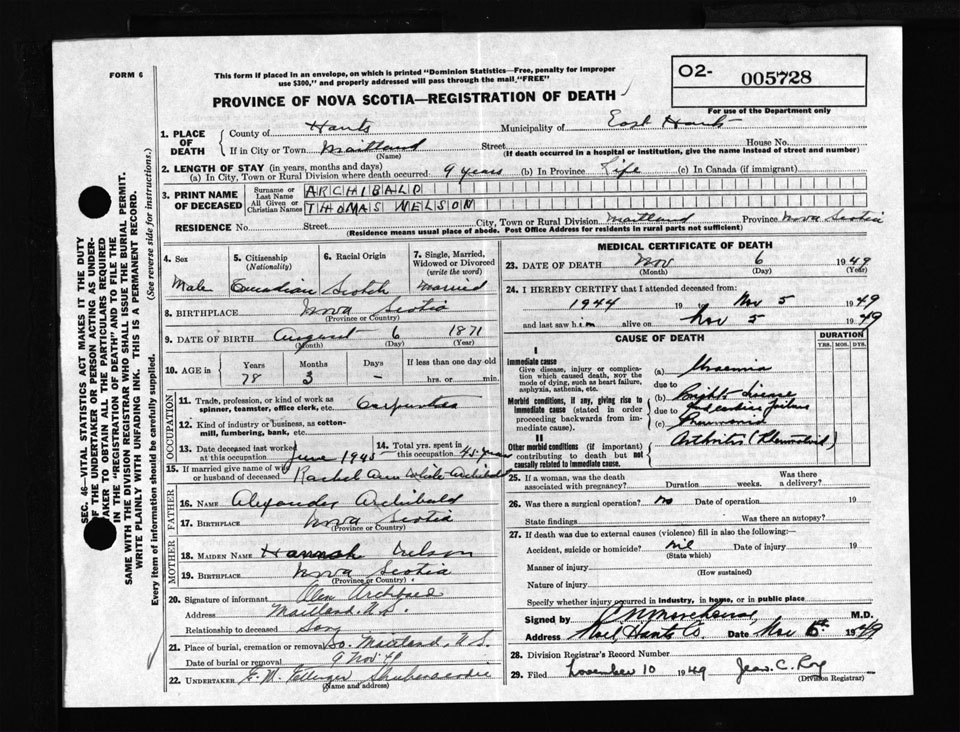 FORM 6
This form if placed in an envelope, on which is printed "Dominion Statistics—Free, penalty for improper
use $300," and properly addressed will pass through the mail "FREE"
O2- 005728
For use of the Department only
PROVINCE OF NOVA SCOTIA—REGISTRATION OF DEATH
1. PLACE OF DEATH
County of Hants Municipality of East Hants
If in City or Town Maitland Street House No.
(Name) (If death occurred in a hospital or institution, give the name instead of street and number)
2. LENGTH OF STAY (in years, months and days)
(a) In City, Town or Rural Division where death occurred 9 years (b) In Province Life (c) In Canada (if immigrant)
3. PRINT NAME OF DECEASED
Surname or Last Name ARCHIBALD
All Given or Christian Names THOMAS NELSON
RESIDENCE No. Street City, Town or Rural Division Maitland Province Nova Scotia
(Residence means usual place of abode. Post Office Address for residents in rural parts not sufficient)
4. Sex Male
5. Citizenship (Nationality) Canadian
6. Racial Origin Scotch
7. Single, Married, Widowed or Divorced (write the word) Married
8. BIRTHPLACE Nova Scotia
(Province or Country)
9. DATE OF BIRTH August 6 1871
(Month) (Day) (Year)
10. AGE in Years 78 Months 3 Days - If less than one day old
hrs. or min.
OCCUPATION
11. Trade, profession, or kind of work as
spinner, teamster, office clerk, etc. Carpenter
12. Kind of industry or business, as cotton-
mill, lumbering, bank, etc.
13. Date deceased last worked
at this occupation June 1945
14. Total yrs. spent in
this occupation 45 years
15. If married give name of wife
or husband of deceased Rachel Ann White Archibald
FATHER
16. NAME Alexander Archibald
17. BIRTHPLACE Nova Scotia
(Province or Country)
MOTHER
18. MAIDEN NAME Hannah Nelson
19. BIRTHPLACE Nova Scotia
(Province or Country)
20. Signature of informant Archibald
Address Maitland N.S.
Relationship to deceased Son
21. Place of burial, cremation or removal So. Maitland, N.S.
Date of burial or removal 9 Nov 49
22. UNDERTAKER E. M. Ettinger Shubenacadie
(Name and address)
MEDICAL CERTIFICATE OF DEATH
23. DATE OF DEATH Nov 6 1949
(Month) (Day) (Year)
24. I HEREBY CERTIFY that I attended deceased from:
1944 19 to Nov 5 1949
and last saw him alive on Nov 5 1949
CAUSE OF DEATH
DURATION
YRS. MOS. DYS.
I
Immediate cause
Give disease, injury or complica-
tion which caused death, NOT the
mode of dying, such as heart failure,
asphyxia, asthenia, etc.
(a) Uraemia
due to
Morbid conditions, if any, giving rise to
immediate cause (stated in order
proceeding backwards from im-
mediate cause).
(b) Brights disease
due to
(c) Pneumonia
II
Other morbid conditions (if important)
contributing to death but not
causally related to immediate cause.
Arthritis (Rheumatoid)
25. If a woman, was the death
associated with pregnancy? Duration weeks. Was there
a delivery?
26. Was there a surgical operation? no Date of operation 19
State findings Was there an autopsy?
27. If death was due to external causes (violence) fill in also the following:
Accident, suicide or homicide? nil Date of injury 19
(State which)
Manner of injury
(How sustained)
Nature of injury
Specify whether injury occurred in industry, in home, or in public place
Signed by M.D.
Address Noel, Hants Co. Date Nov 6th 1949
28. Division Registrar's Record Number
29. Filed November 10 1949 Jean C. Roy
(Division Registrar)
SEC. 46—VITAL STATISTICS ACT MAKES IT THE DUTY
OF THE UNDERTAKER OR PERSON ACTING AS UNDER-
TAKER TO OBTAIN ALL THE PARTICULARS REQUIRED
IN THE "REGISTRATION OF DEATH" AND TO FILE THE
SAME WITH THE DIVISION REGISTRAR WHO SHALL ISSUE THE BURIAL PERMIT.
WRITE PLAINLY WITH UNFADING INK. THIS IS A PERMANENT RECORD.
Every item of information should be carefully supplied. (See reverse side for instructions.)